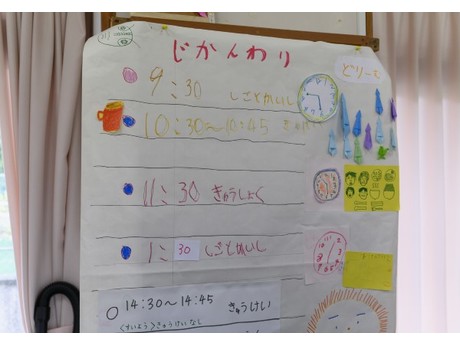 じかんわり
どりーむ
9:30 しごとかいし
10:30〜10:45 きゅうけい
11:30 きゅうしょく
1:30 しごとかいし
14:30〜14:45 きゅうけい
くすいよう>きゅうけいなし